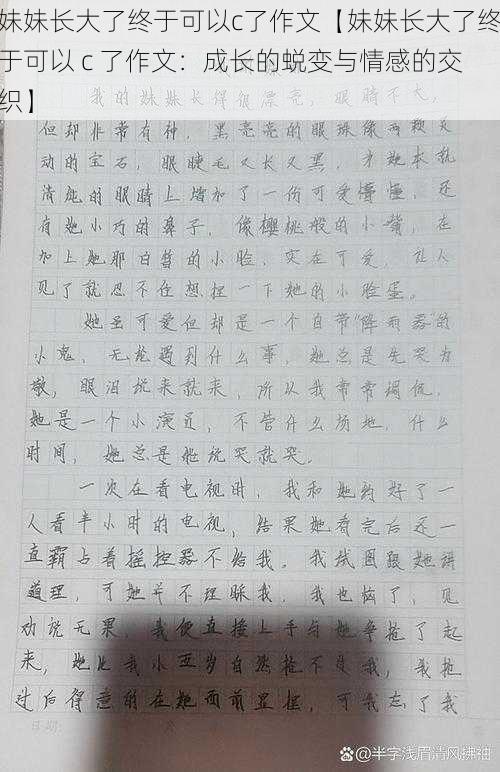 妹妹长大了终于可以c了作文【妹妹长大了终
于可以 c 了作文：成长的蜕变与情感的交
织】
我的妹妹长得很漂亮，眼睛不大，
但却非常有神，黑亮亮的眼珠像两颗灵
动的宝石，眼睫毛又长又黑，为她本就
清纯的眼睛上增加了一份可爱懵懂，还
有她小巧的鼻子，像樱桃般的小嘴，在
加上她那白皙的小脸，实在可爱，让人
见了就忍不住想捏一下她的小脸蛋。
她虽可爱但却是一个自带“降雨器”的
小鬼，无论遇到什么事，她总是先哭为
敬，眼泪说来就来，所以我常常调侃，
她是一个小演员，不管什么场地，什么
时间，她总是她说哭就哭。
一次在看电视时，我和她约好了一
人看半小时的电视，结果她看完后还一
直霸占着摇控器不给我。我试图跟她讲
道理，可她并不理睬我，我也恼了，见
劝说无果，我便直接上手与她争抢了起
来，她比我小五岁自然抢不过我，我抢
过后得意的在她面前显摆，可我忘了我
日期：
@半字浅眉清风拂袖